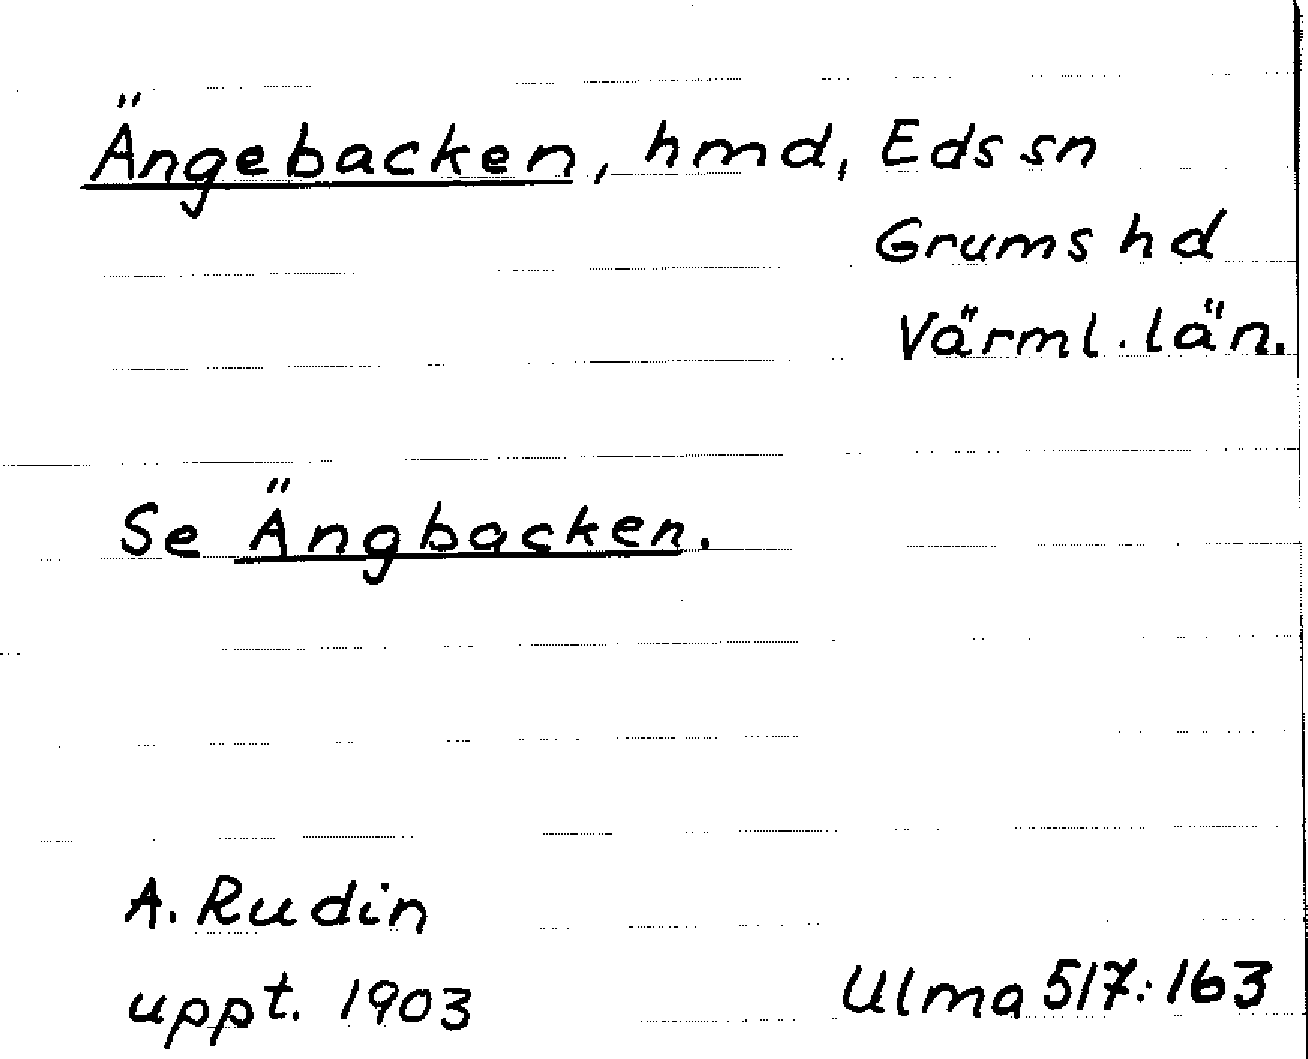 Ängebacken, hmd, Eds sn
Grums hd
Värml. län.
Se Ängbacken.
A. Rudin
uppt. 1903
Ulma 517:163